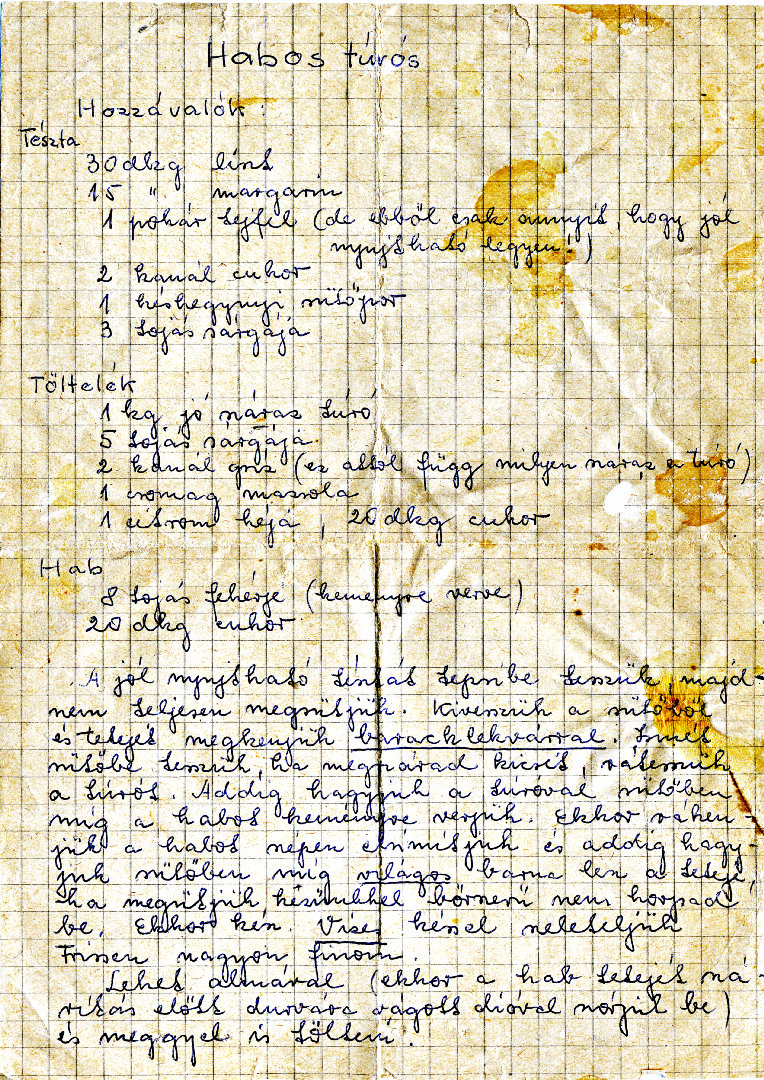 Habos túrós
Hozzávalók:
Tészta
30 dkg liszt
15 " margarin
1 pohár tejfel (de ebből csak annyit, hogy jól
nyujtható legyen!)
2 kanál cukor
1 késhegynyi sütőpor
3 tojás sárgája
Töltelék
1 kg jó száraz túró
5 tojás sárgája
2 kanál gríz (ez attól függ milyen száraz a túró)
1 csomag mazsola
1 citrom héja, 20 dkg cukor
Hab
8 tojás fehérje (keményre verve)
20 dkg cukor
A jól nyujtható tésztát tepsibe tesszük, majd-
nem teljesen megsütjük. Kivesszük a sütőből
és tetejét megkenjük baracklekvárral. Ismét
sütőbe tesszük, ha megszárad kicsit, rátesszük
a túrót. Addig hagyjuk a túróval sütőben
míg a habot keményre verjük. Ekkor ráken-
jük a habot szépen elsimítjuk és addig hagy-
juk sütőben míg világos barna lesz a teteje,
ha megütjük kézünkkel bőrszerű nem horpad
be. Ekkor kész. Vizes késsel szeleteljük
Frissen nagyon finom.
Lehet almával (ekkor a hab tetejét szá-
rítás előtt durvára vágott dióval szórjuk be)
és meggyel is tölteni.